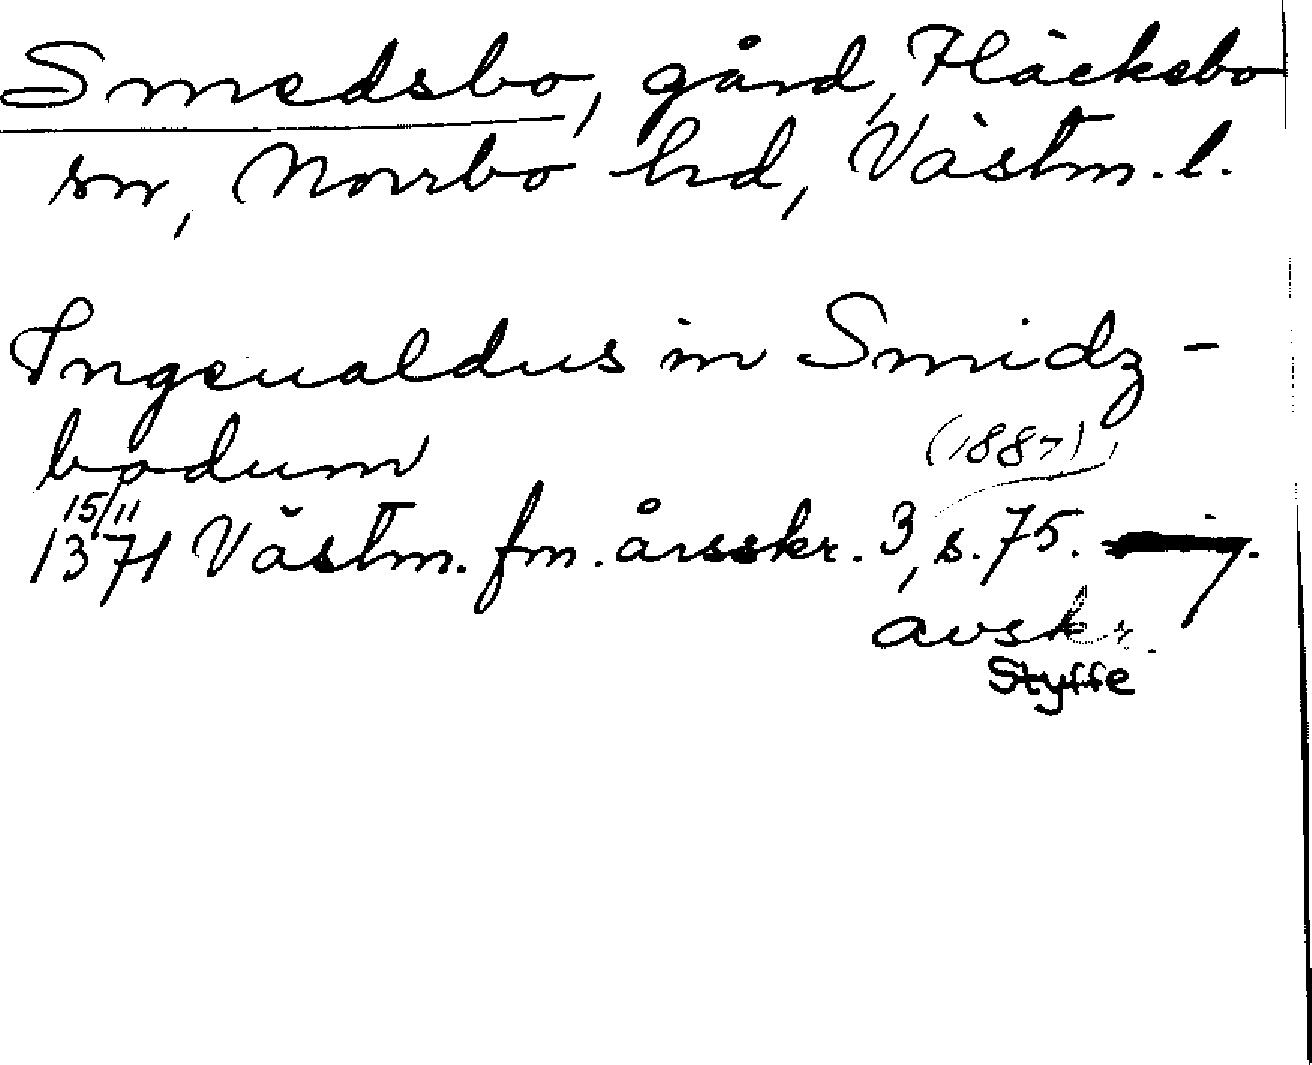 Smedsbo, gård, Fläckebo
sn, Norrbo hd, Västm. l.
Ingeualdus in Smidz-
bodum
(1887)
15/11
1371 Västm. fm. årsskr. 3, s. 75.
avskr.
Styffe